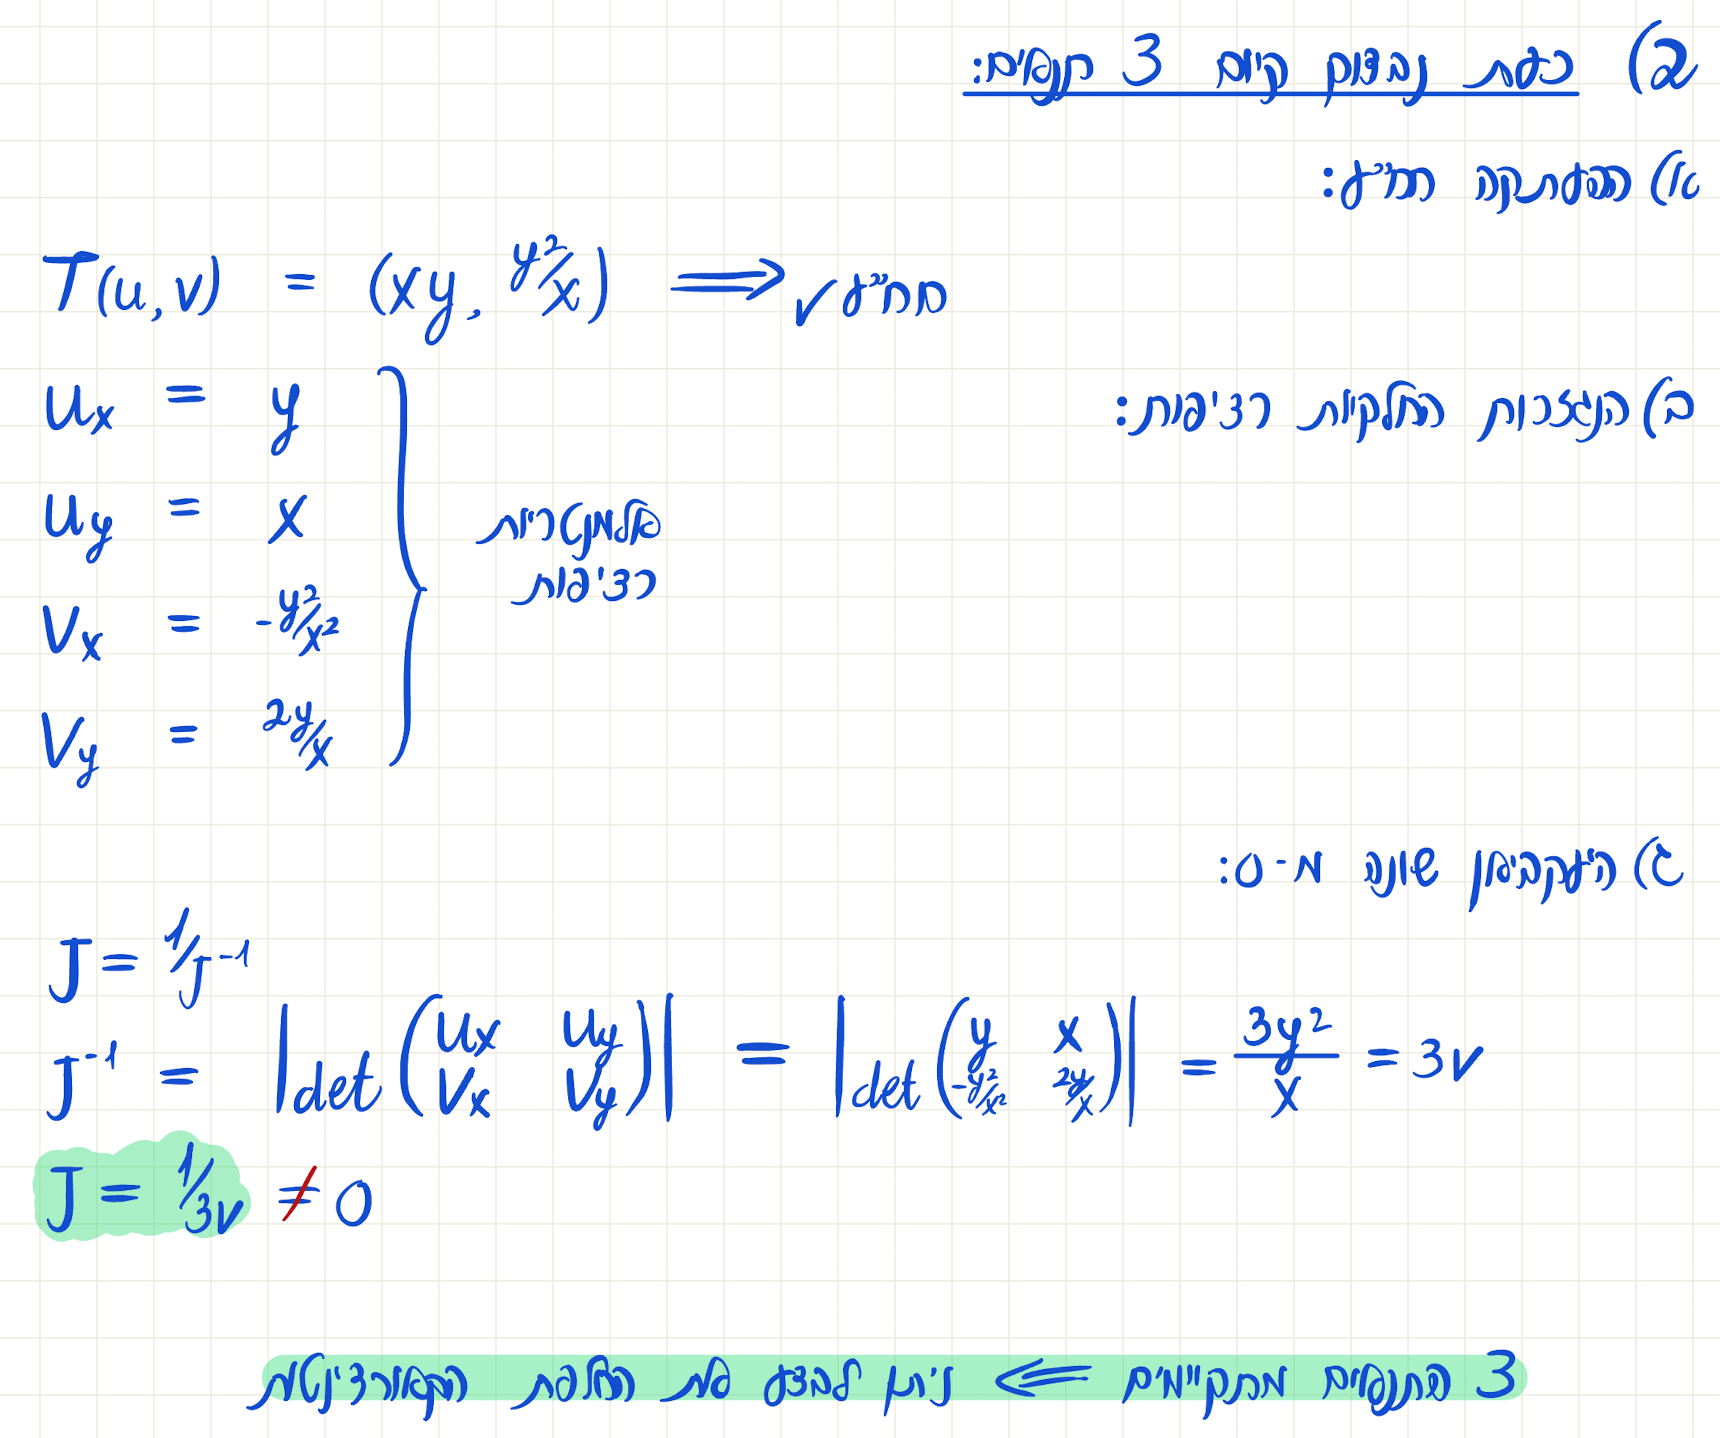 2) כעת נבדוק קיום 3 תנאים:
א) ההעתקה חח"ע:
T(u,v) = (xy, y²/x) ⟹ חח"ע ✓
ב) הנגזרות החלקיות רציפות:
u_x = y
u_y = x
v_x = -y²/x²
v_y = 2y/x
אלמנטריות
רציפות
ג) היעקוביאן שונה מ-0:
J = 1/J⁻¹
J⁻¹ = |det(u_x u_y v_x v_y)| = |det(y x -y²/x² 2y/x)| = 3y²/x = 3v
J = 1/3v ≠ 0
3 התנאים מתקיימים ⟸ ניתן לבצע את החלפת הקאורדינטות